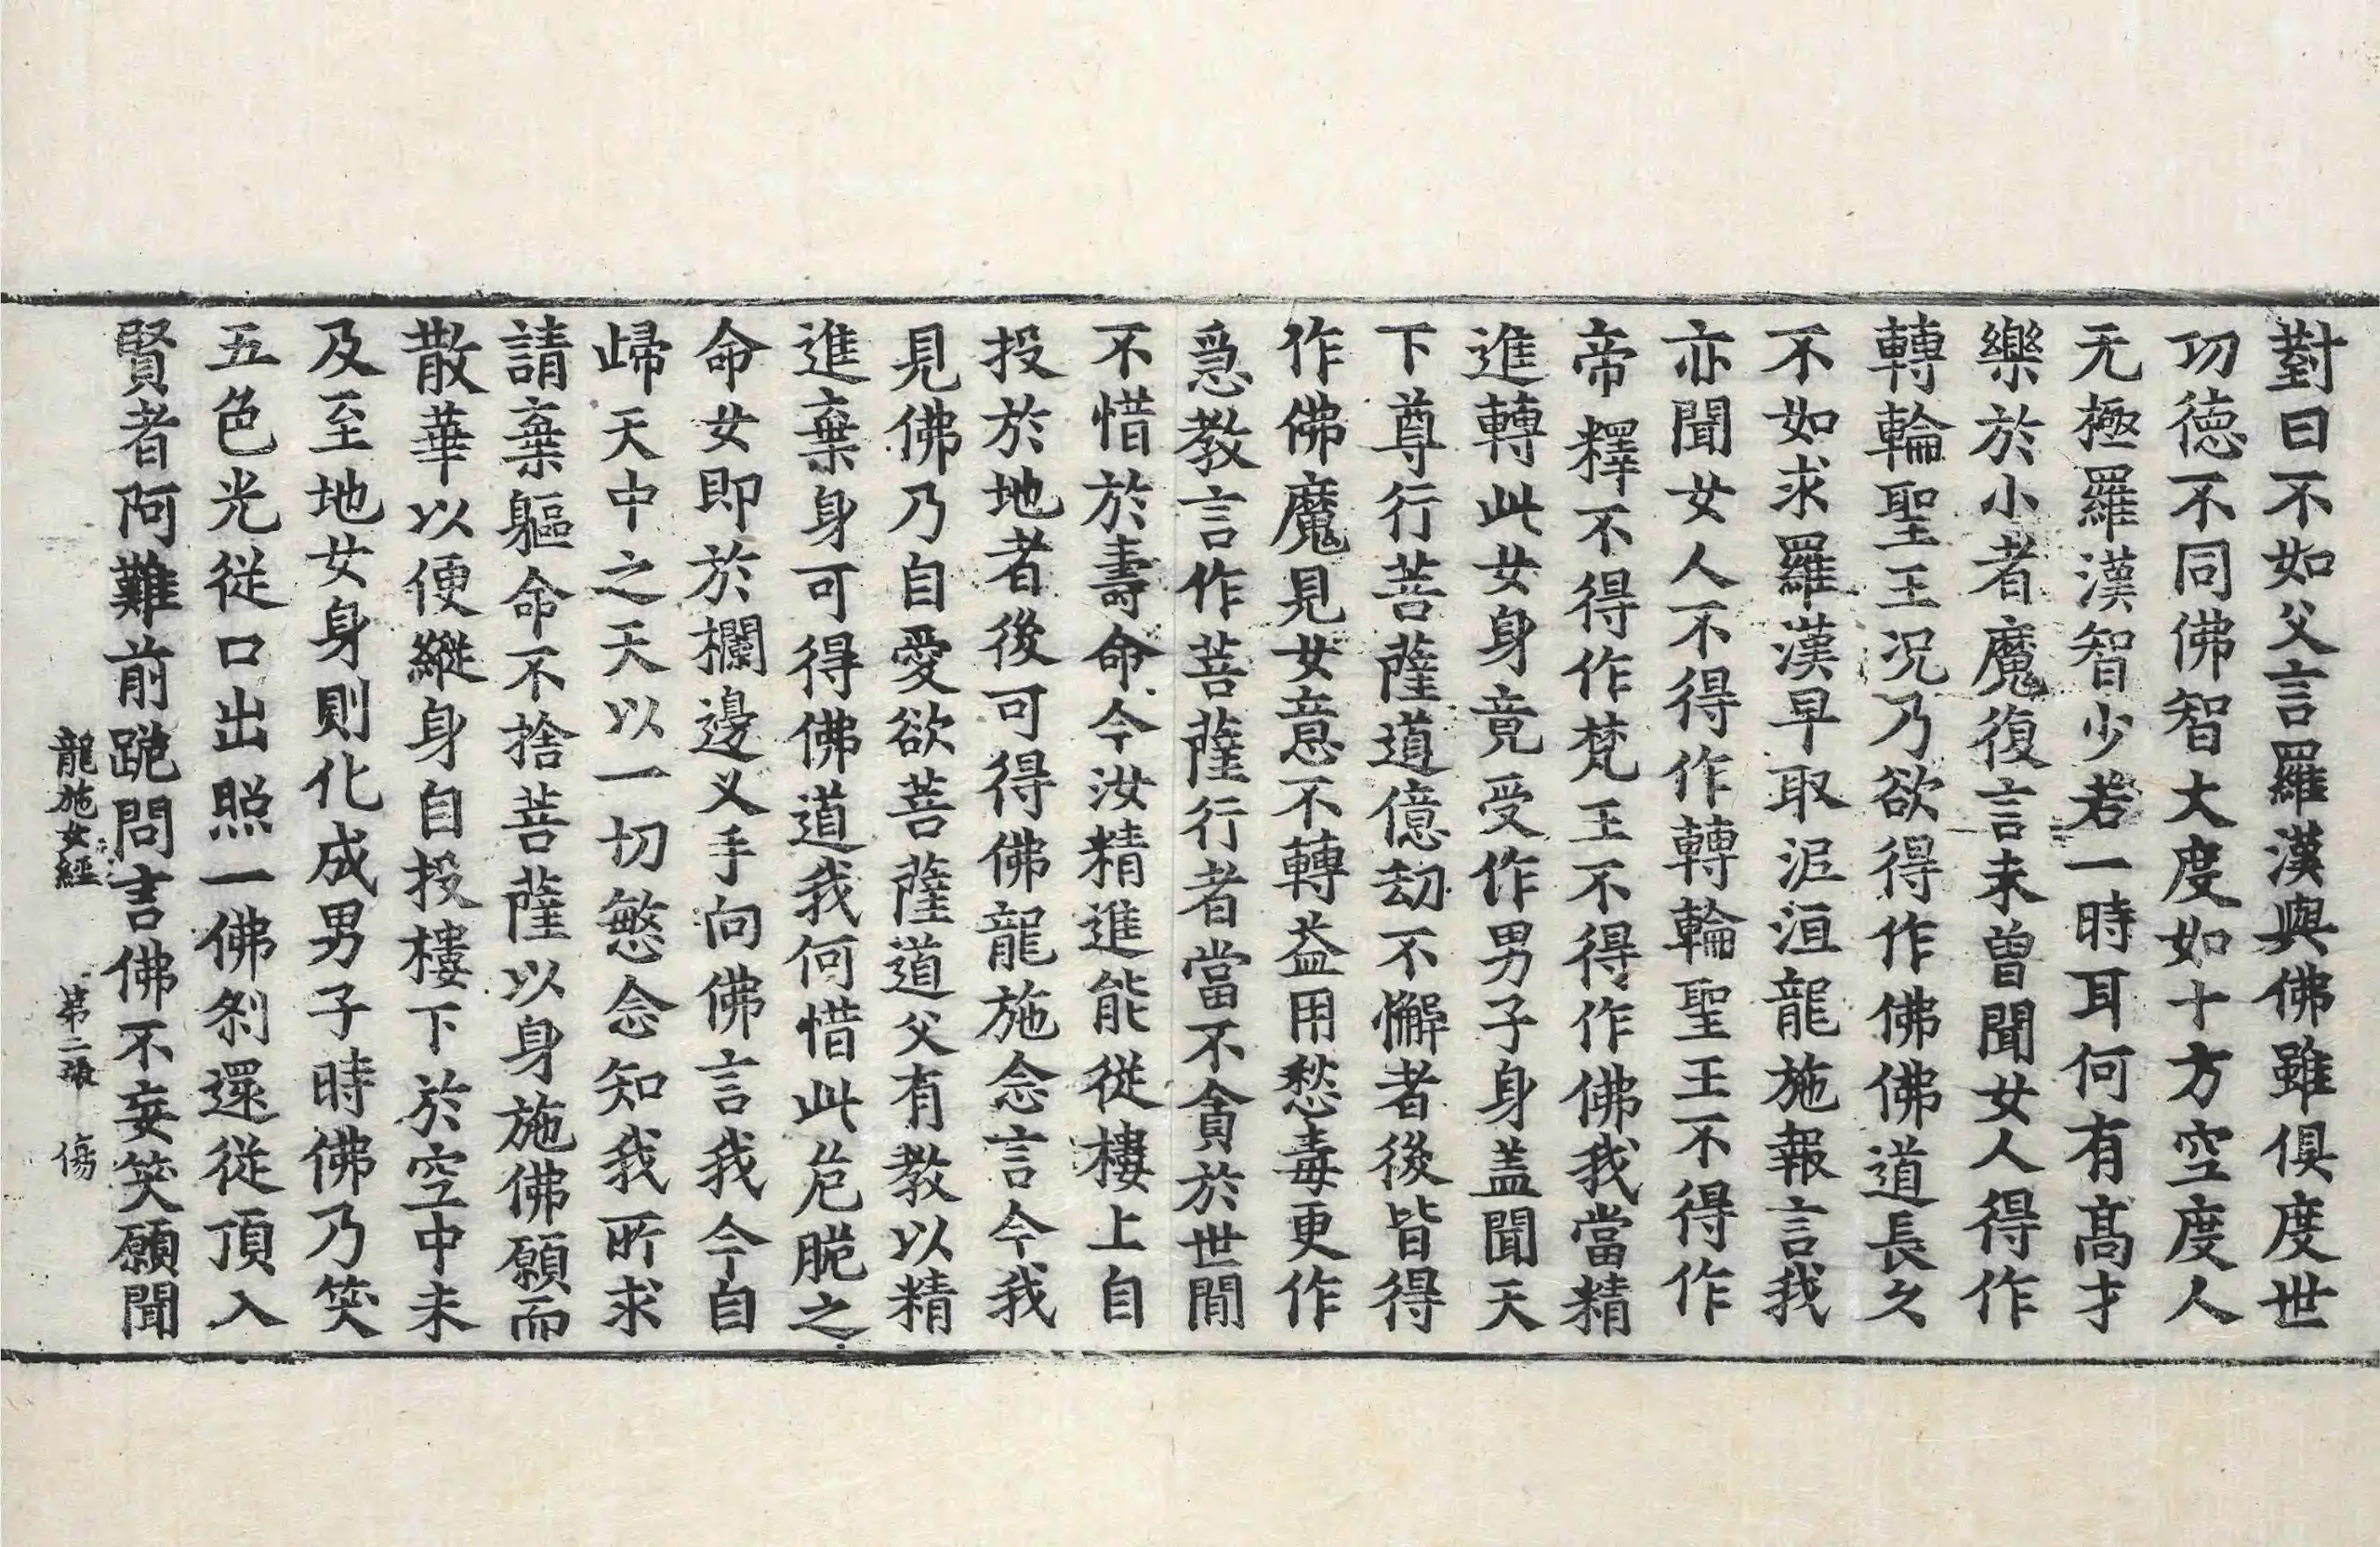 對曰不如父言羅漢與佛雖俱度世
功德不同佛智大度如十方空度人
无極羅漢智少若一時耳何有髙才
樂於小者魔復言未曽聞女人得作
轉輪聖王况乃欲得作佛佛道長久
不如求羅漢早取泥洹龍施報言我
亦聞女人不得作轉輪聖王不得作
帝釋不得作梵王不得作佛我當精
進轉此女身竟受作男子身盖聞天
下尊行菩薩道億劫不懈者後皆得
作佛魔見女意不轉益用愁毒更作
急教言作菩薩行者當不貪於世間
不惜於壽命今汝精進能從樓上自
投於地者後可得佛龍施念言今我
見佛乃自愛欲菩薩道父有教以精
進棄身可得佛道我何惜此危脆之
命女即於欄邊叉手向佛言我今自
歸天中之天以一切慜念知我所求
請棄軀命不捨菩薩以身施佛願而
散華以便縱身自投樓下於空中未
及至地女身則化成男子時佛乃笑
五色光從口出照一佛刹還從頂入
賢者阿難前跪問言佛不妄笑願聞
龍施女經 第二張 傷